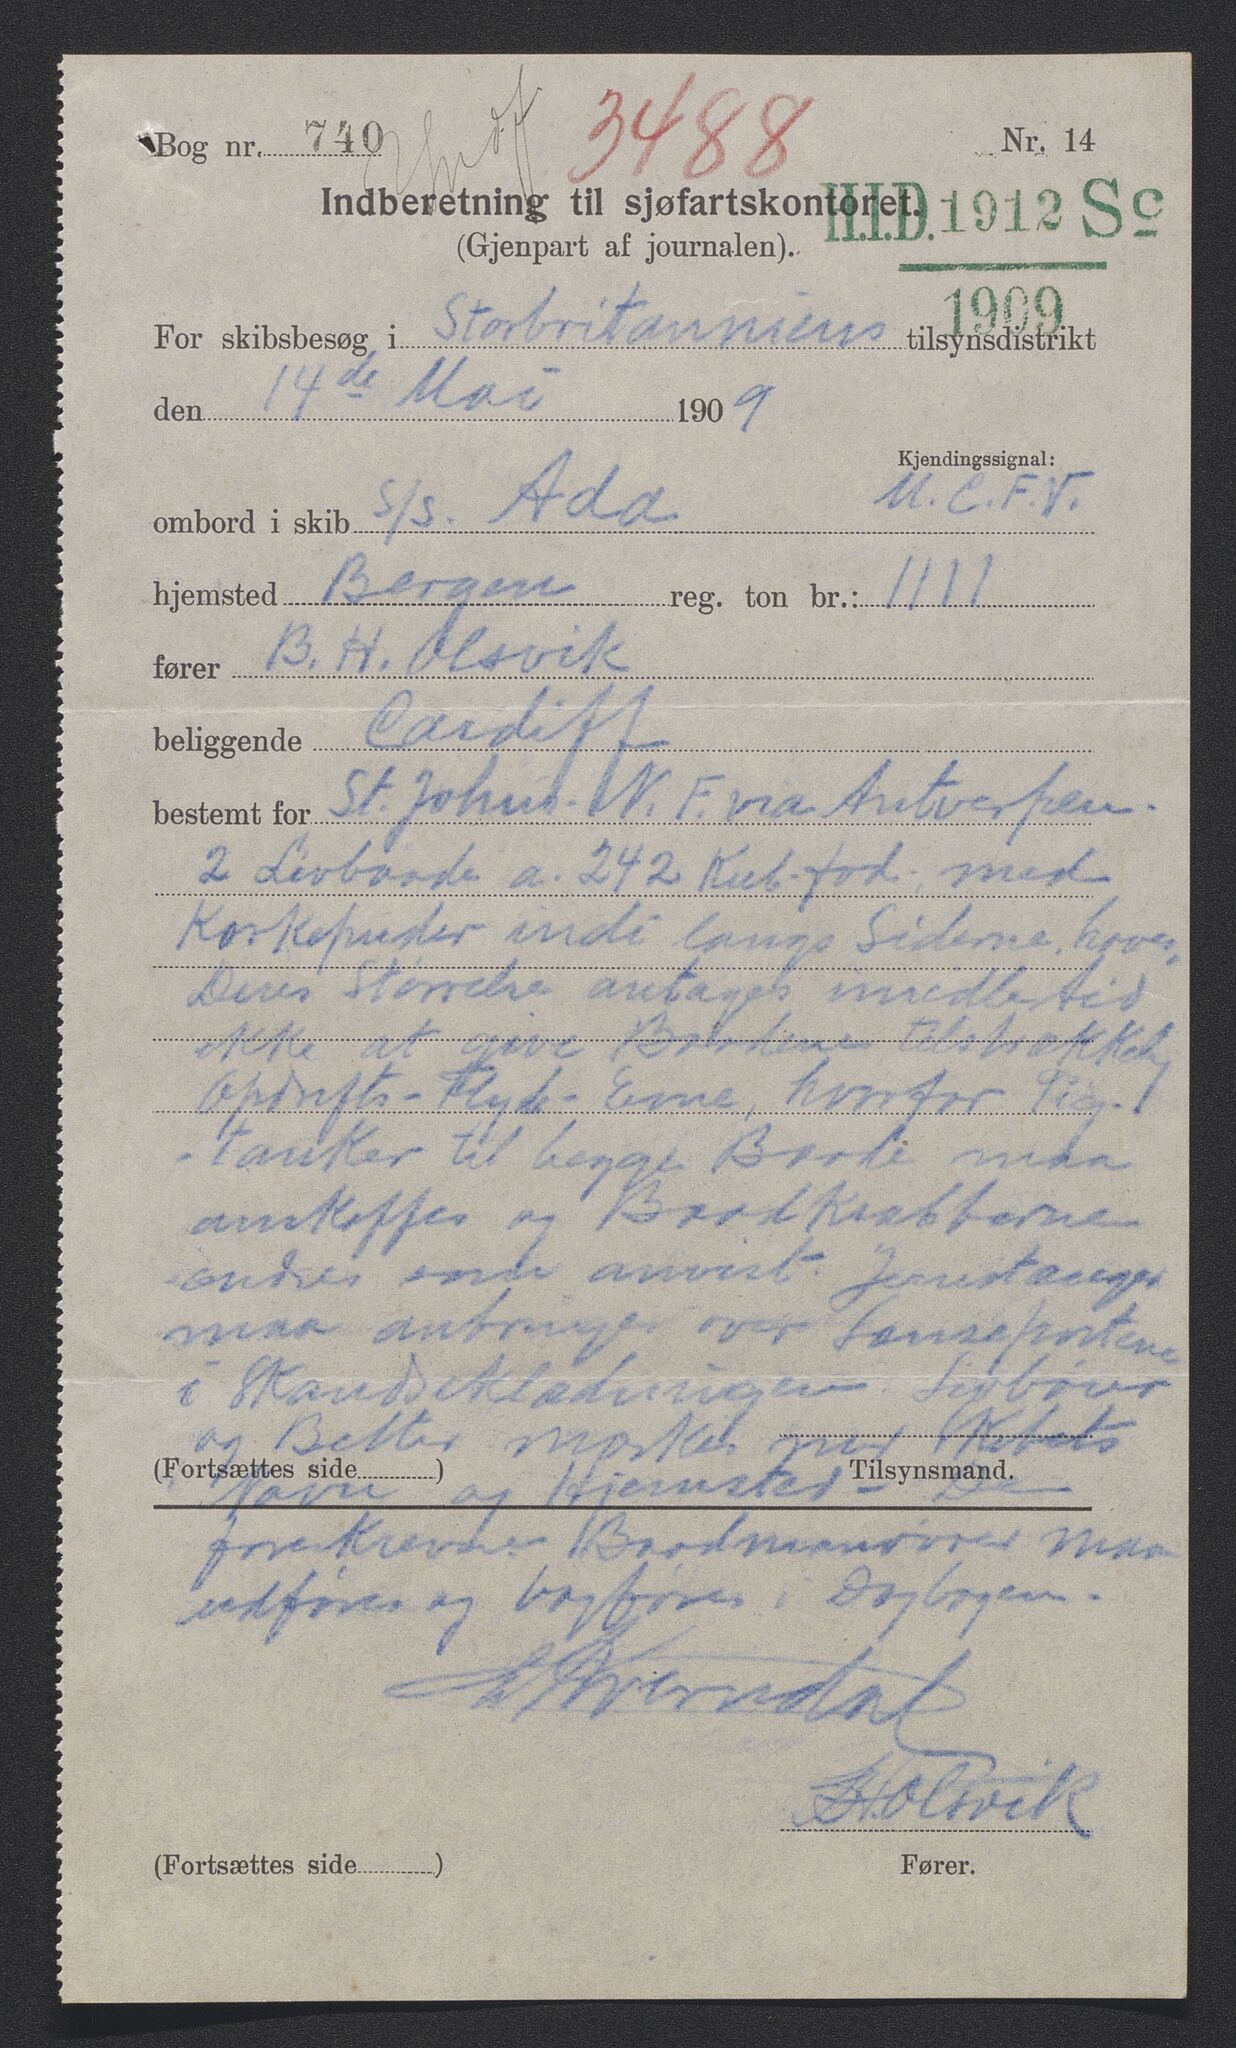 Bog nr. 740
3488
Nr. 14
Indberetning til sjøfartskontoret.
H.I.D. 1912 Sc
(Gjenpart af journalen).
1909
For skibsbesøg i Storbritanniens tilsynsdistrikt
den 14de Mai 1909
Kjendingssignal:
M.C.F.V.
ombord i skib s/s. Ada
hjemsted Bergen reg. ton br.: 1111
fører B. H. Olsvik
beliggende Cardiff
bestemt for St. Johns. N. F. via Antverpen.
2 Livbaade a. 242 Kub. fod. med
Korkepuder indi langs Siderne. haves.
Deres Størrelse antages imidlertid
ikke at give Baadene tilstrækkelig
Opdrifts- Flyde- Evne, hvorfor
tanker til begge Baade maa
anskaffes og Baadkrabberne
endres som anvist. Jernstænger
maa anbringes over Lenseportene
i Skandseklædningen. Livbøier
og Belter mærkes med Skibets
(Fortsættes side ) Tilsynsmand.
Navn og Hjemsted. De
foreskrevne Baadmanøvrer maa
udføres og bogføres i Dagbogen.
Olsvik
(Fortsættes side ) Fører.